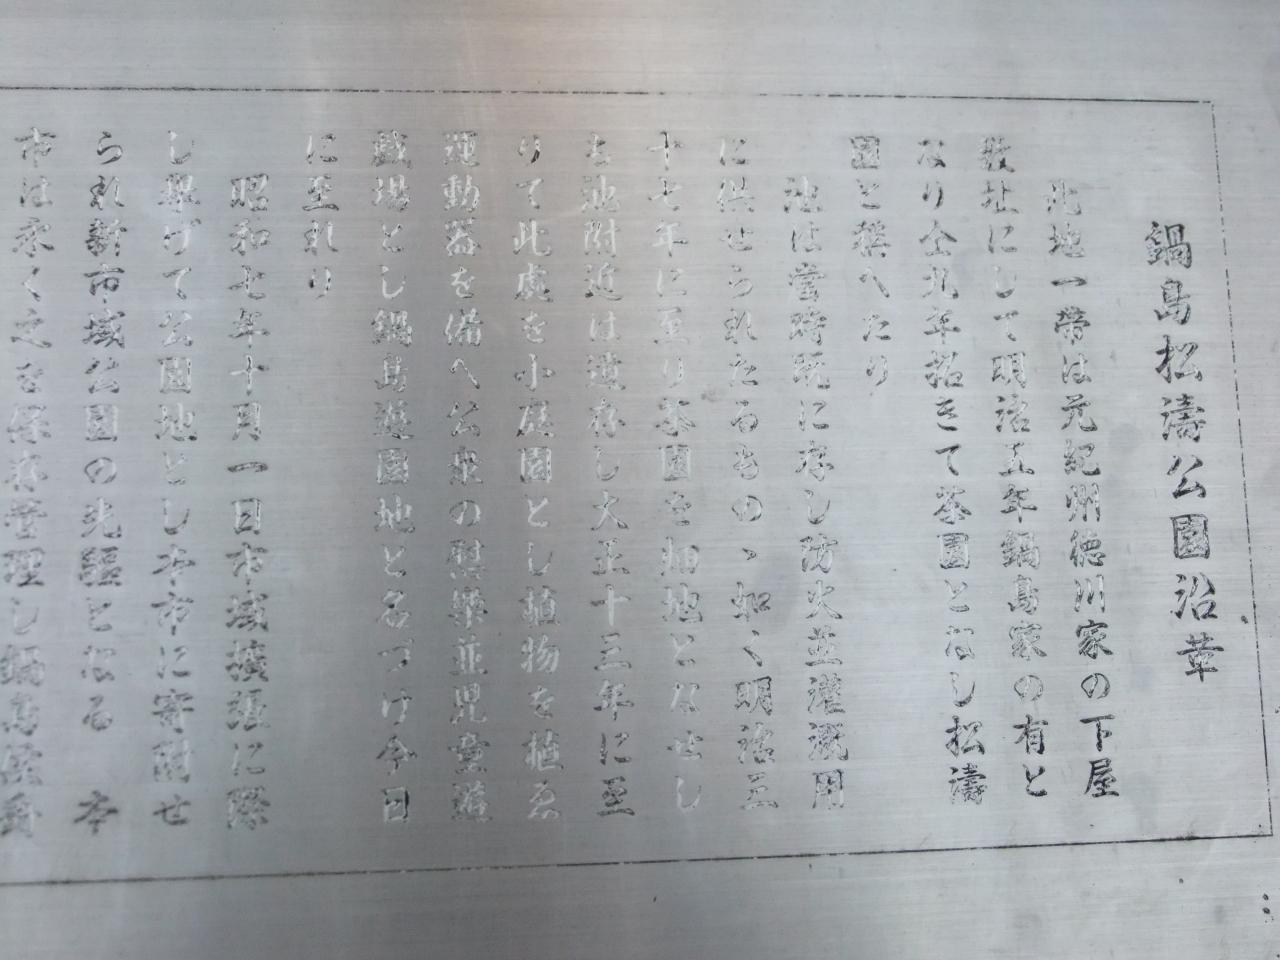 鍋島松濤公園沿革
此地一帯は元紀州徳川家の下屋
敷址にして明治五年鍋島家の有と
なり仝九年拓きて茶園となし松濤
園と称へたり
池は當時既に存し防火並灌漑用
に供せられたるものゝ如く明治三
十七年に至り茶園を畑地となせし
も池附近は遺存し大正十三年に至
りて此處を小庭園とし植物を植ゑ
運動器を備へ公衆の慰樂並児童遊
戯場とし鍋島遊園地と名づけ今日
に至れり
昭和七年十月一日市域擴張に際
し舉げて公園地とし本市に寄附せ
られ新市域公園の先驅となる 本
市は永く之を保存管理し鍋島